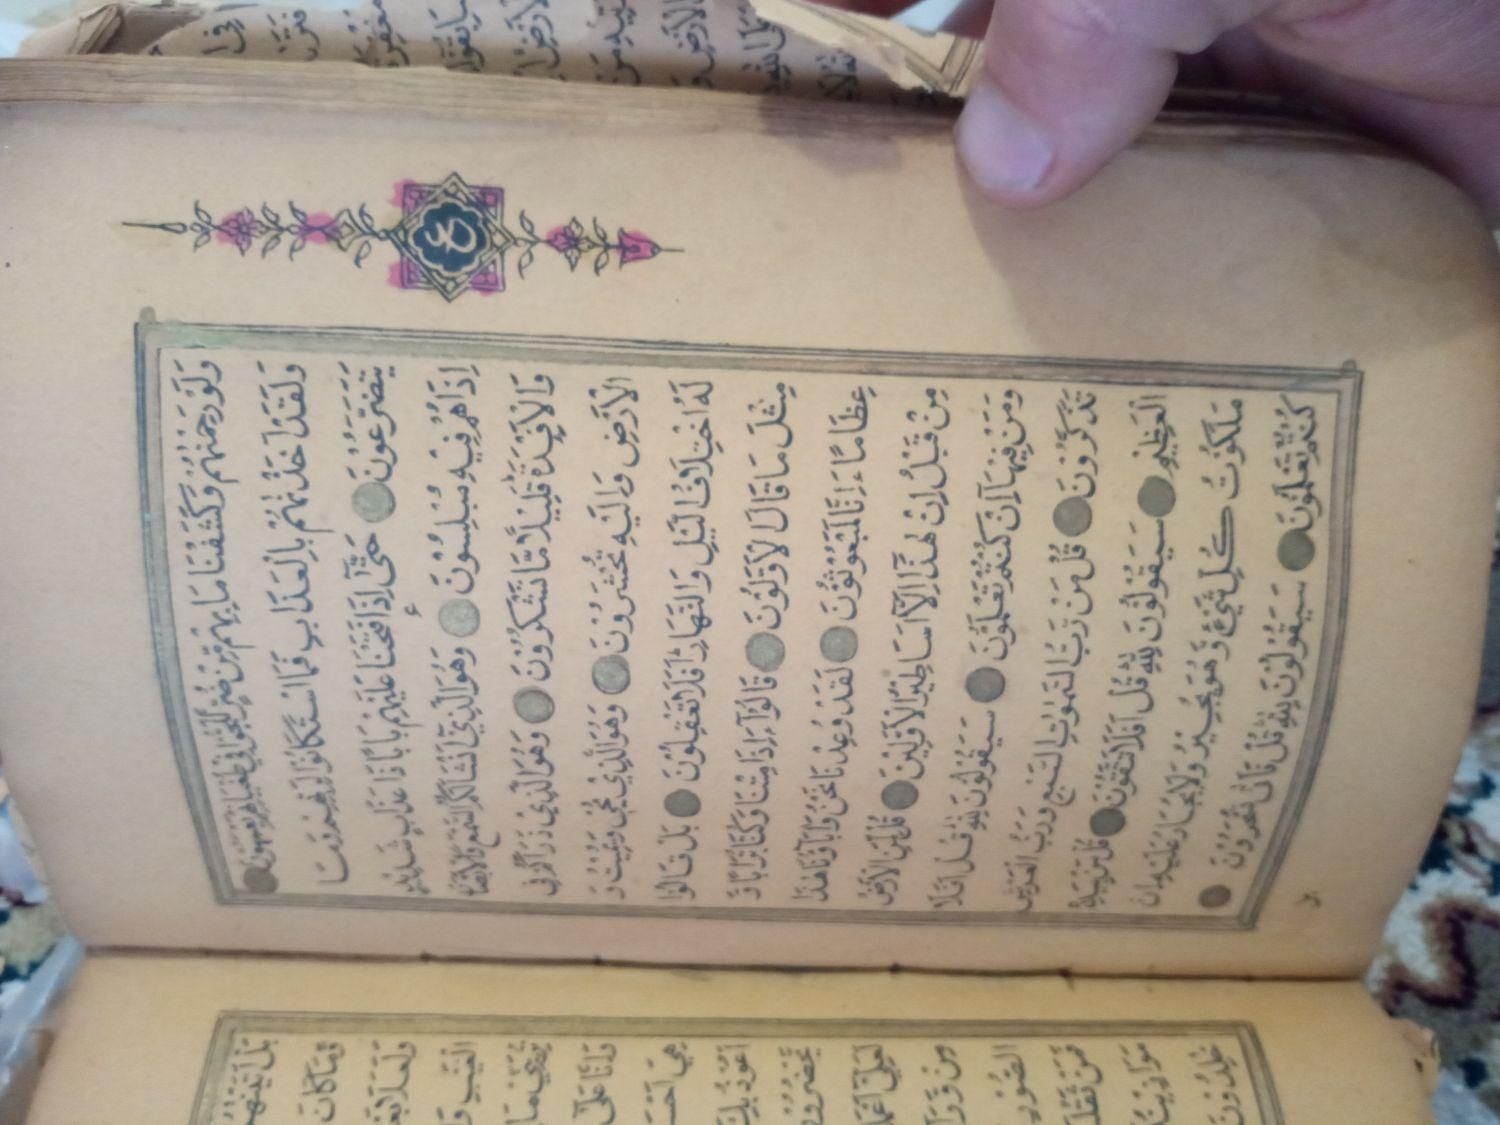 ع
وَلَوْ رَحِمْنٰهُمْ وَكَشَفْنَا مَا بِهِمْ مِنْ ضُرٍّ لَلَجُّوا فِي طُغْيَانِهِمْ يَعْمَهُونَ
وَلَقَدْ اَخَذْنٰهُمْ بِالْعَذَابِ فَمَا اسْتَكَانُوا لِرَبِّهِمْ وَمَا
يَتَضَرَّعُونَ حَتّٰى اِذَا فَتَحْنَا عَلَيْهِمْ بَابًا ذَا عَذَابٍ شَدِيدٍ
اِذَا هُمْ فِيهِ مُبْلِسُونَ وَهُوَ الَّذِي اَنْشَاَ لَكُمُ السَّمْعَ وَالْاَبْصَارَ
وَالْاَفْـِٔدَةَ قَلِيلًا مَا تَشْكُرُونَ وَهُوَ الَّذِي ذَرَاَكُمْ فِي
الْاَرْضِ وَاِلَيْهِ تُحْشَرُونَ وَهُوَ الَّذِي يُحْيِي وَيُمِيتُ وَ
لَهُ اخْتِلَافُ الَّيْلِ وَالنَّهَارِ اَفَلَا تَعْقِلُونَ بَلْ قَالُوا
مِثْلَ مَا قَالَ الْاَوَّلُونَ قَالُوا ءَاِذَا مِتْنَا وَكُنَّا تُرَابًا وَ
عِظَامًا ءَاِنَّا لَمَبْعُوثُونَ لَقَدْ وُعِدْنَا نَحْنُ وَاٰبَاؤُنَا هٰذَا
مِنْ قَبْلُ اِنْ هٰذَا اِلَّا اَسَاطِيرُ الْاَوَّلِينَ قُلْ لِمَنِ الْاَرْضُ
وَمَنْ فِيهَا اِنْ كُنْتُمْ تَعْلَمُونَ سَيَقُولُونَ لِلّٰهِ قُلْ اَفَلَا
تَذَكَّرُونَ قُلْ مَنْ رَبُّ السَّمٰوَاتِ السَّبْعِ وَرَبُّ الْعَرْشِ
الْعَظِيمِ سَيَقُولُونَ لِلّٰهِ قُلْ اَفَلَا تَتَّقُونَ قُلْ مَنْ بِيَدِهِ
مَلَكُوتُ كُلِّ شَيْءٍ وَهُوَ يُجِيرُ وَلَا يُجَارُ عَلَيْهِ اِنْ
كُنْتُمْ تَعْلَمُونَ سَيَقُولُونَ لِلّٰهِ قُلْ فَاَنّٰى تُسْحَرُونَ
بَلْ اَتَيْنٰهُمْ
وَمَا كَانَ
وَلَعَلَا بَعْضُهُمْ
الْغَيْبِ وَ
وَاِنَّا عَلٰى
هِيَ اَحْسَنُ
اَعُوذُ بِكَ
لَعَلِّي اَعْمَلُ
الصُّورِ
فَمَنْ ثَقُلَتْ
مَوَازِينُهُ